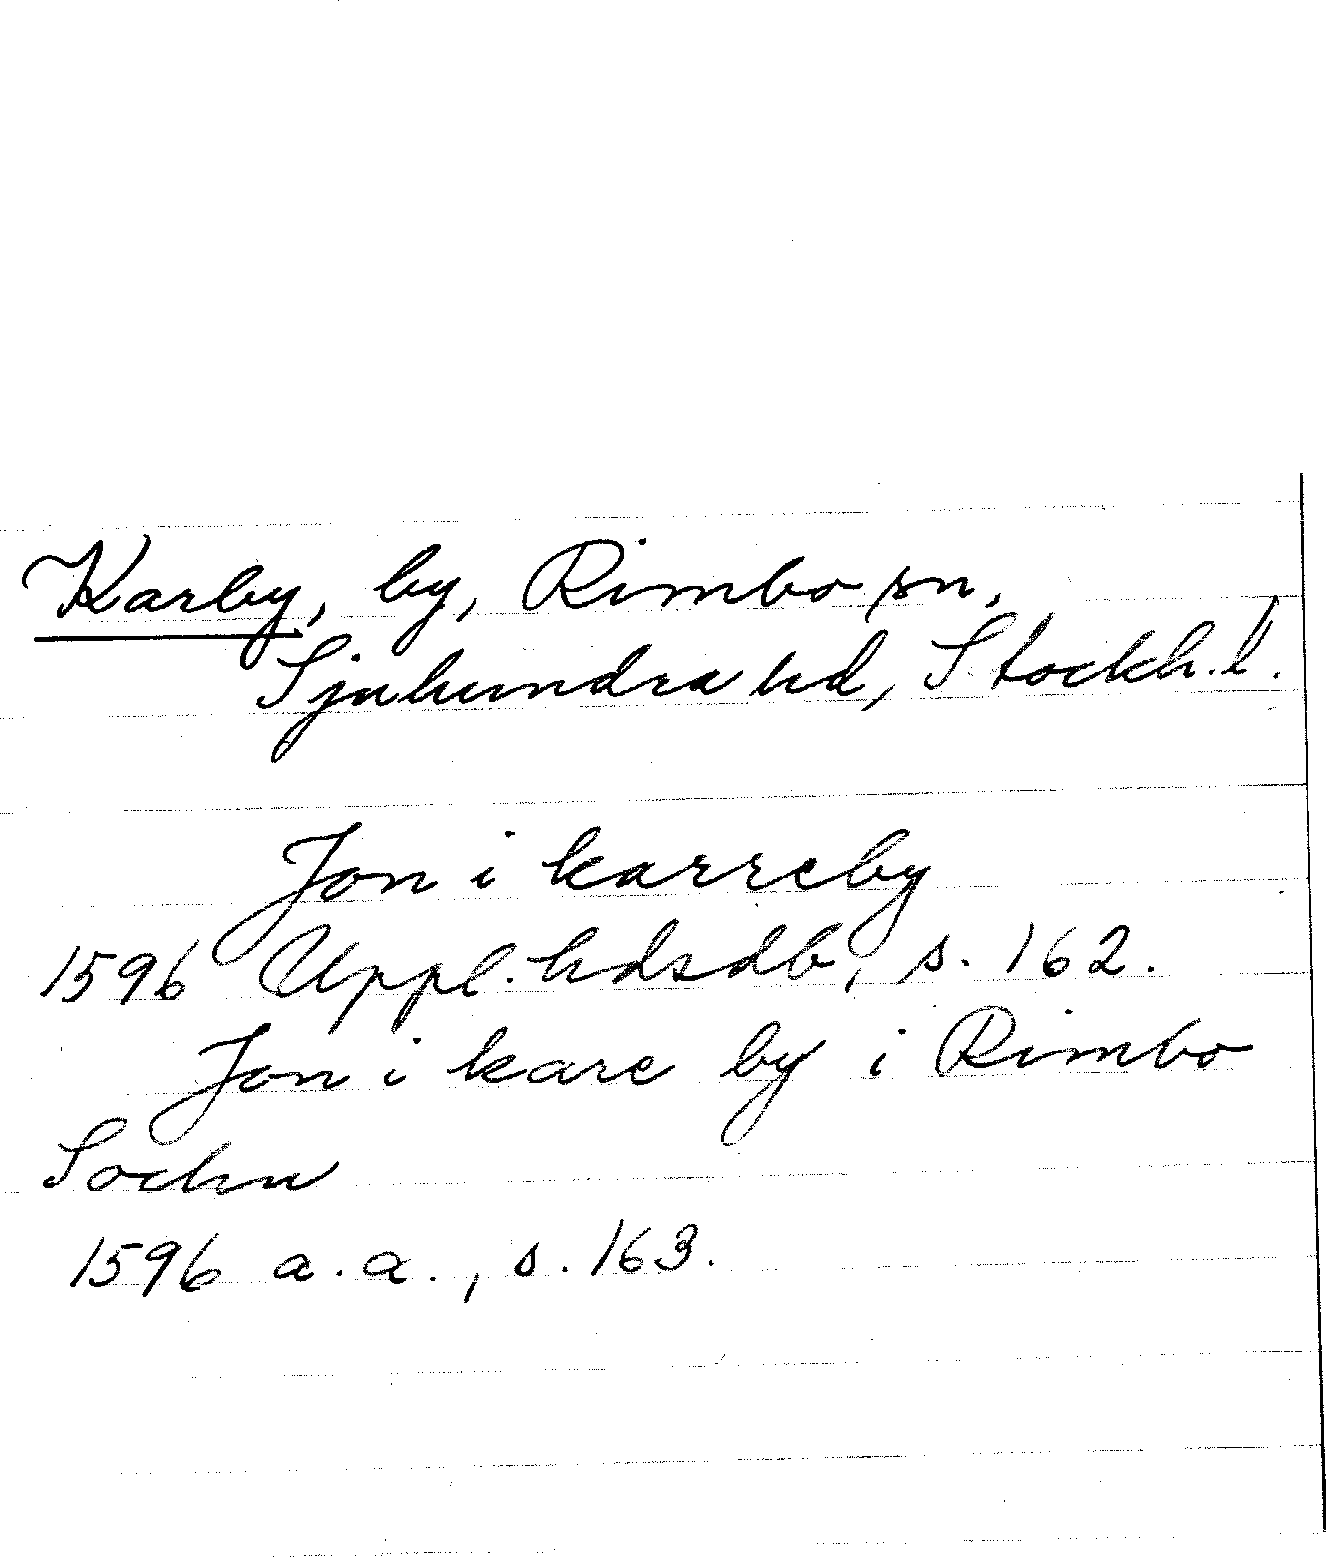 Karby, by, Rimbo sn,
Sjuhundra hd, Stockh. l.
Jon i karreby
1596 Uppl. hdsdb, s. 162.
Jon i kare by i Rimbo
Sochn
1596 a. a., s. 163.